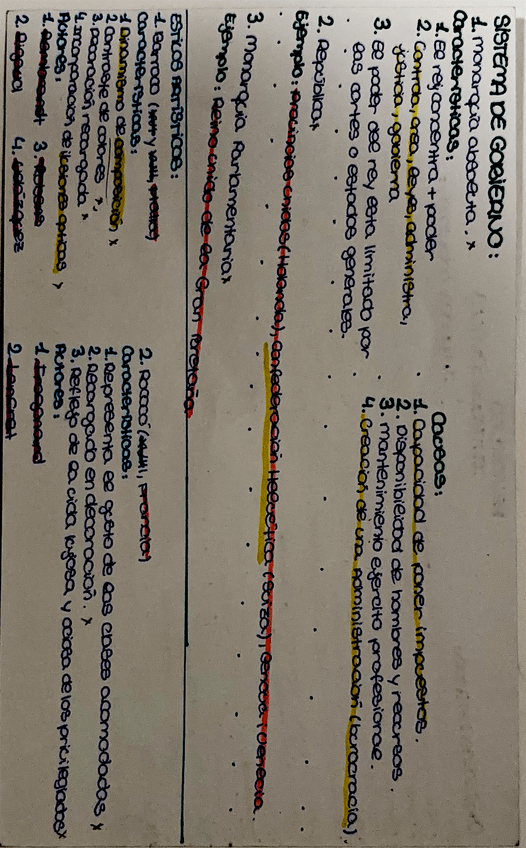 SISTEMA DE GOBIERNO:
1. Monarquía absoluta. x
Características:
1. El rey concentra + poder
2. Controla, crea, leyes, administra,
justicia, gobierna
3. El poder del rey esta limitado por
las cortes o estados generales.
Causas:
1. Capacidad de poner impuestos.
2. Disponibilidad de hombres y recursos.
3. mantenimiento ejército profesional.
4. Creación de una administración (burocracia)
2. República x
Ejemplo: Provincias Unidas (Holanda), Confederación Helvética (Suiza), Génova, Venecia.
3. Monarquía Parlamentaria x
Ejemplo: Reino Unido de la Gran Bretaña
ESTILOS ARTÍSTICOS:
1. Barroco
Características:
1. Dinamismo de composición x
2. Contraste de colores x
3. Decoración recargada x
4. Incorporación de ilusiones ópticas x
Autores:
1. Rembrandt 3. Rubens
2. Bernini 4. Velázquez
2. Rococó (XVIII, Francia)
Características:
1. Representa el gusto de las clases acomodadas x
2. Recargado en decoración. x
3. Reflejo de la vida lujosa y ociosa de los privilegiados x
Autores:
1. Fragonard
2.